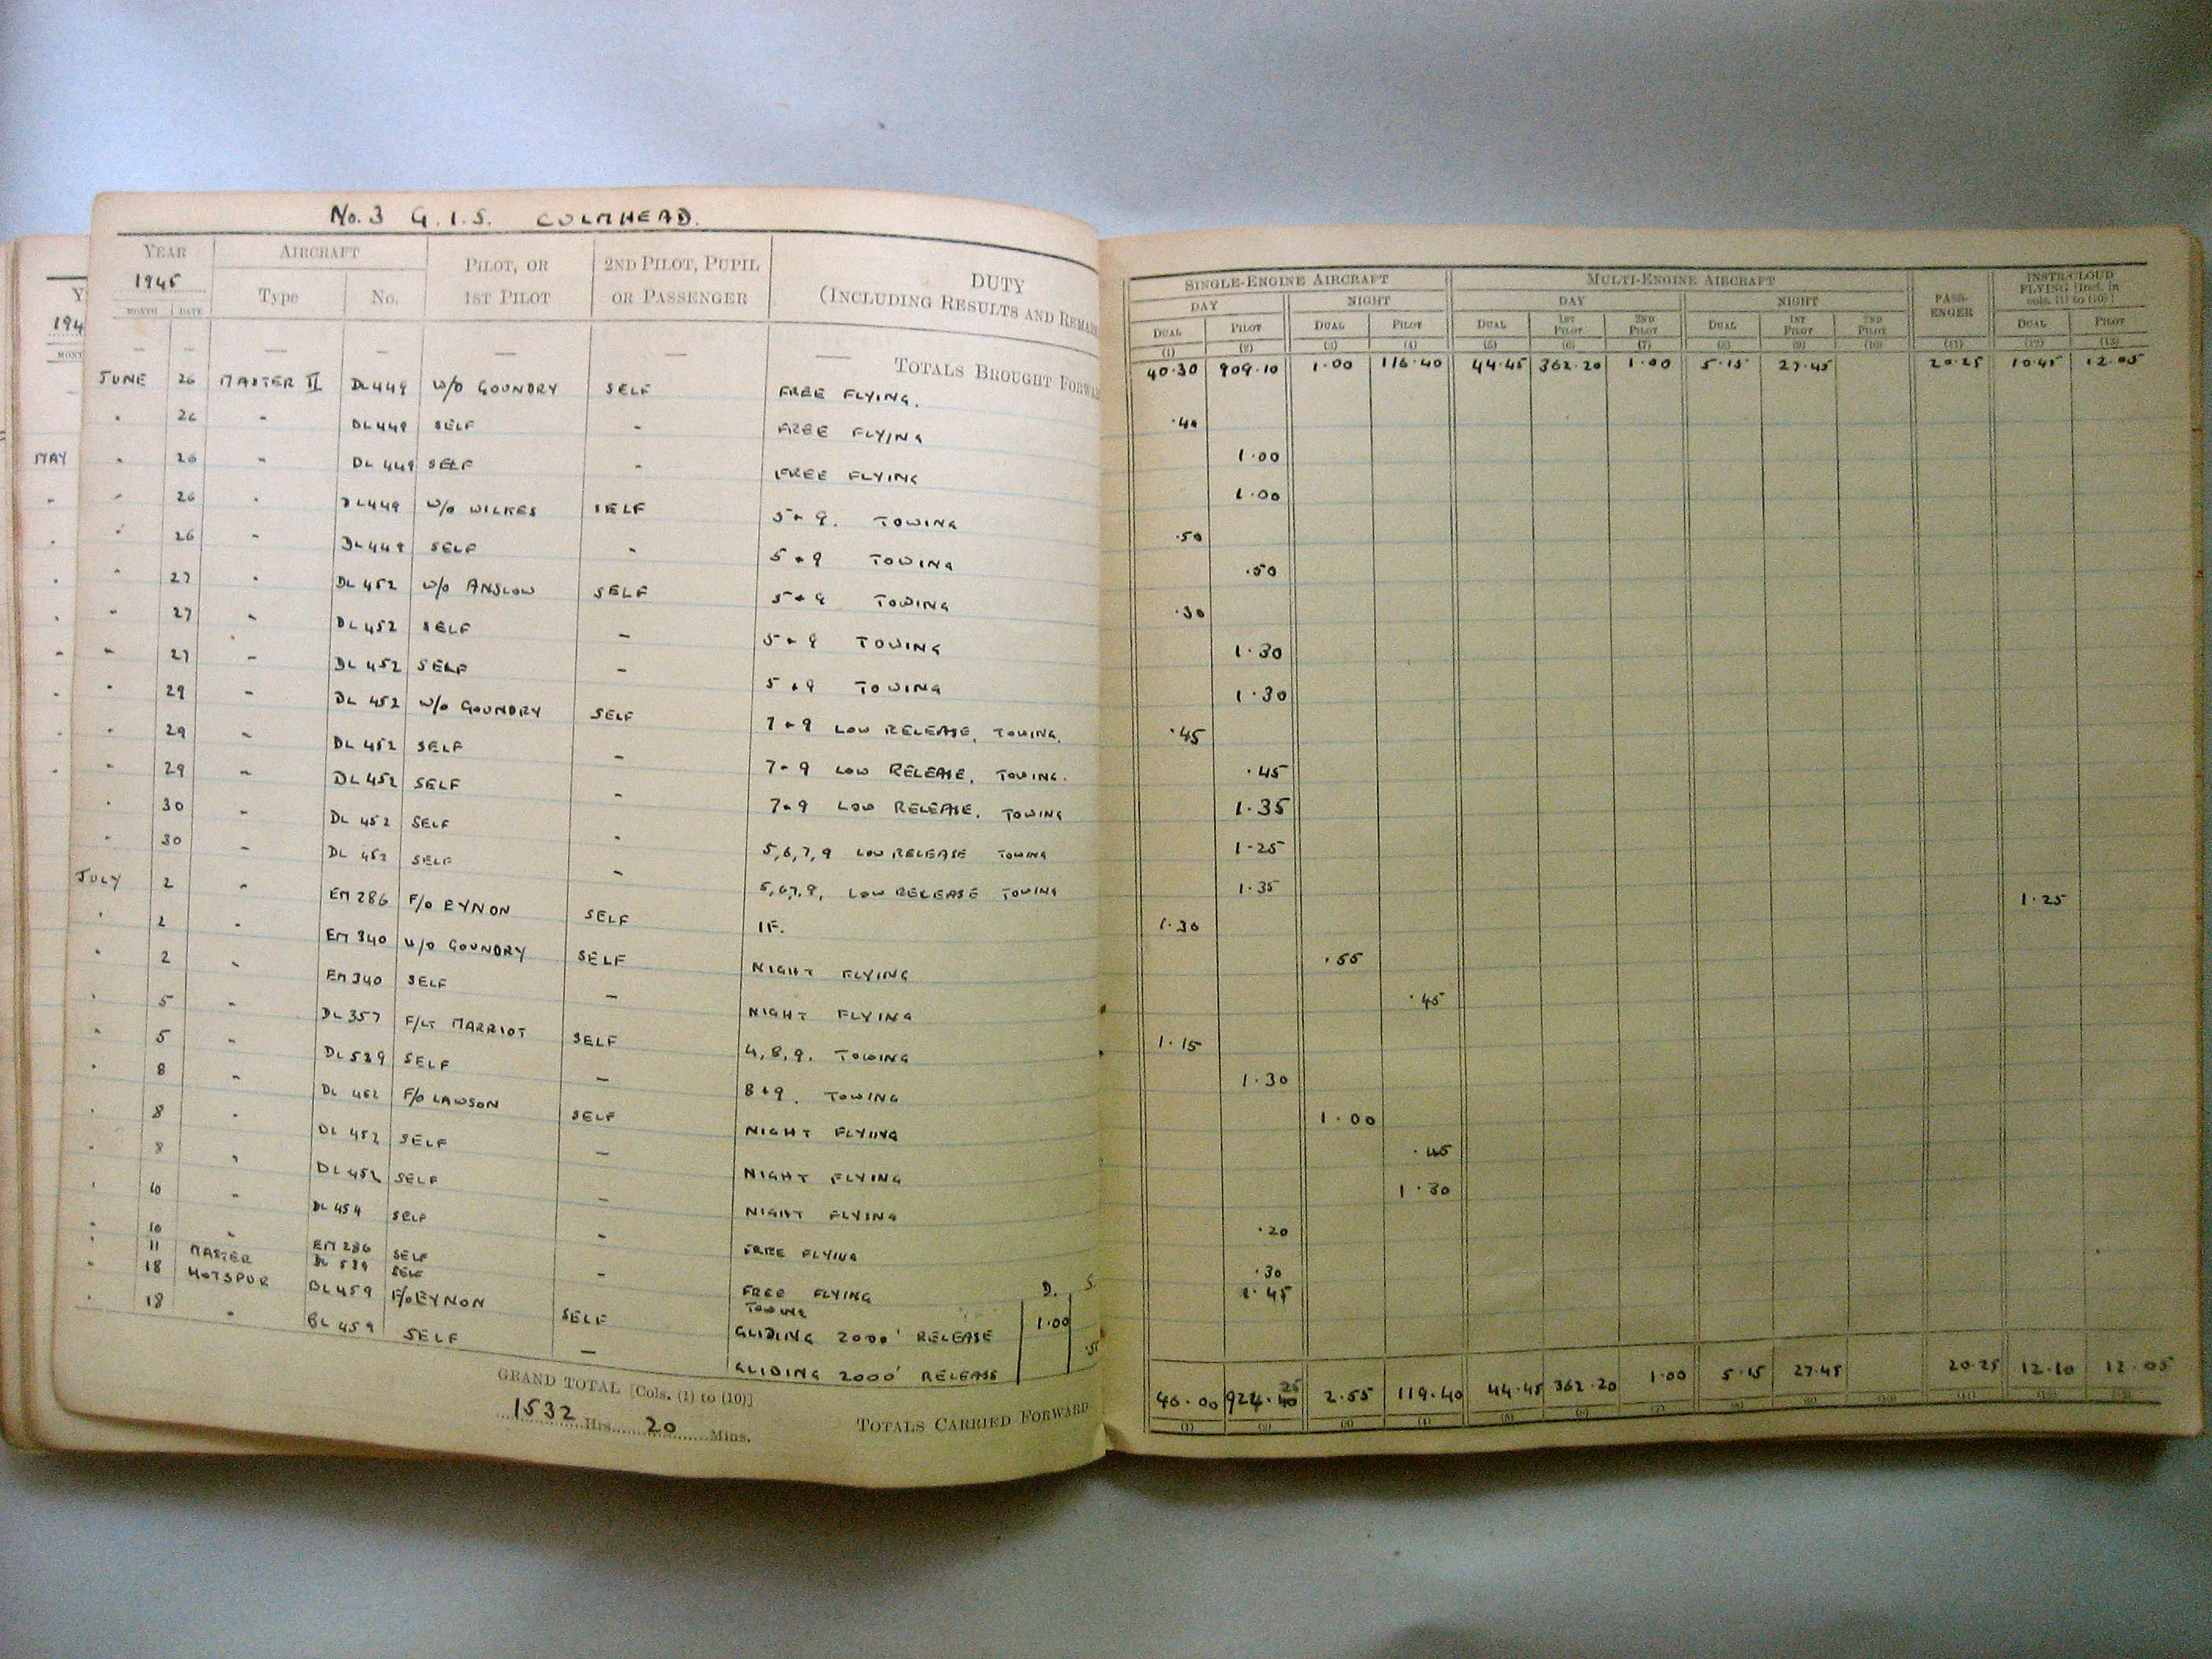 No. 3 G.I.S. COLMHEAD.
YEAR AIRCRAFT PILOT, OR 1ST PILOT 2ND PILOT, PUPIL OR PASSENGER DUTY
1945 Type No. (INCLUDING RESULTS AND REMA
MONTH DATE
— — — — — — — TOTALS BROUGHT FORWA
JUNE 26 MASTER II DL449 W/O GOUNDRY SELF FREE FLYING.
" 26 " DL449 SELF - FREE FLYING
" 26 " DL449 SELF - FREE FLYING
" 26 " DL449 W/O WILKES SELF 5+9. TOWING
" 26 " DL449 SELF - 5+9 TOWING
" 27 " DL452 W/O ANSLOW SELF 5+9 TOWING
" 27 " DL452 SELF - 5+9 TOWING
" 27 " DL452 SELF - 5+9 TOWING
" 29 " DL452 W/O GOUNDRY SELF 7+9 LOW RELEASE. TOWING.
" 29 " DL452 SELF - 7+9 LOW RELEASE. TOWING.
" 29 " DL452 SELF - 7+9 LOW RELEASE. TOWING
" 30 " DL452 SELF - 5,6,7,9 LOW RELEASE TOWING
" 30 " DL452 SELF - 5,6,7,9, LOW RELEASE TOWING
JULY 2 " EM286 F/O EYNON SELF IF.
" 2 " EM340 W/O GOUNDRY SELF NIGHT FLYING
" 2 " EM340 SELF - NIGHT FLYING
" 5 " DL357 F/LT MARRIOT SELF 4,8,9. TOWING
" 5 " DL529 SELF - 8+9. TOWING
" 8 " DL452 F/O LAWSON SELF NIGHT FLYING
" 8 " DL452 SELF - NIGHT FLYING
" 8 " DL452 SELF - NIGHT FLYING
" 10 " DL454 SELF - FREE FLYING
" 10 " EM286 SELF - FREE FLYING D. S.
" 11 MASTER DL529 SELF TOWING
" 18 HOTSPUR BL459 F/O EYNON SELF GLIDING 2000' RELEASE 1.00
" 18 " BL459 SELF - GLIDING 2000' RELEASE
GRAND TOTAL [Cols. (1) to (10)]
1532 Hrs. 20 Mins.
TOTALS CARRIED FORWARD
Y
194
MONT
MAY
SINGLE-ENGINE AIRCRAFT MULTI-ENGINE AIRCRAFT PASS-ENGER INSTR/CLOUD FLYING [Incl. in cols. (1) to (10)]
DAY NIGHT DAY NIGHT
DUAL PILOT DUAL PILOT DUAL 1ST PILOT 2ND PILOT DUAL 1ST PILOT 2ND PILOT DUAL PILOT
(1) (2) (3) (4) (5) (6) (7) (8) (9) (10) (11) (12) (13)
40.30 909.10 1.00 116.40 44.45 362.20 1.00 5.15 27.45 20.25 10.45 12.05
.40
1.00
1.00
.50
.50
.30
1.30
1.30
.45
.45
1.35
1.25
1.35
1.30 1.25
.55
.45
1.15
1.30
1.00
.45
1.30
.20
.30
1.45
46.00 924.40 25 2.55 119.40 44.45 362.20 1.00 5.15 27.45 20.25 12.10 12.05
(1) (2) (3) (4) (5) (6) (7) (8) (9) (10) (11) (12) (13)